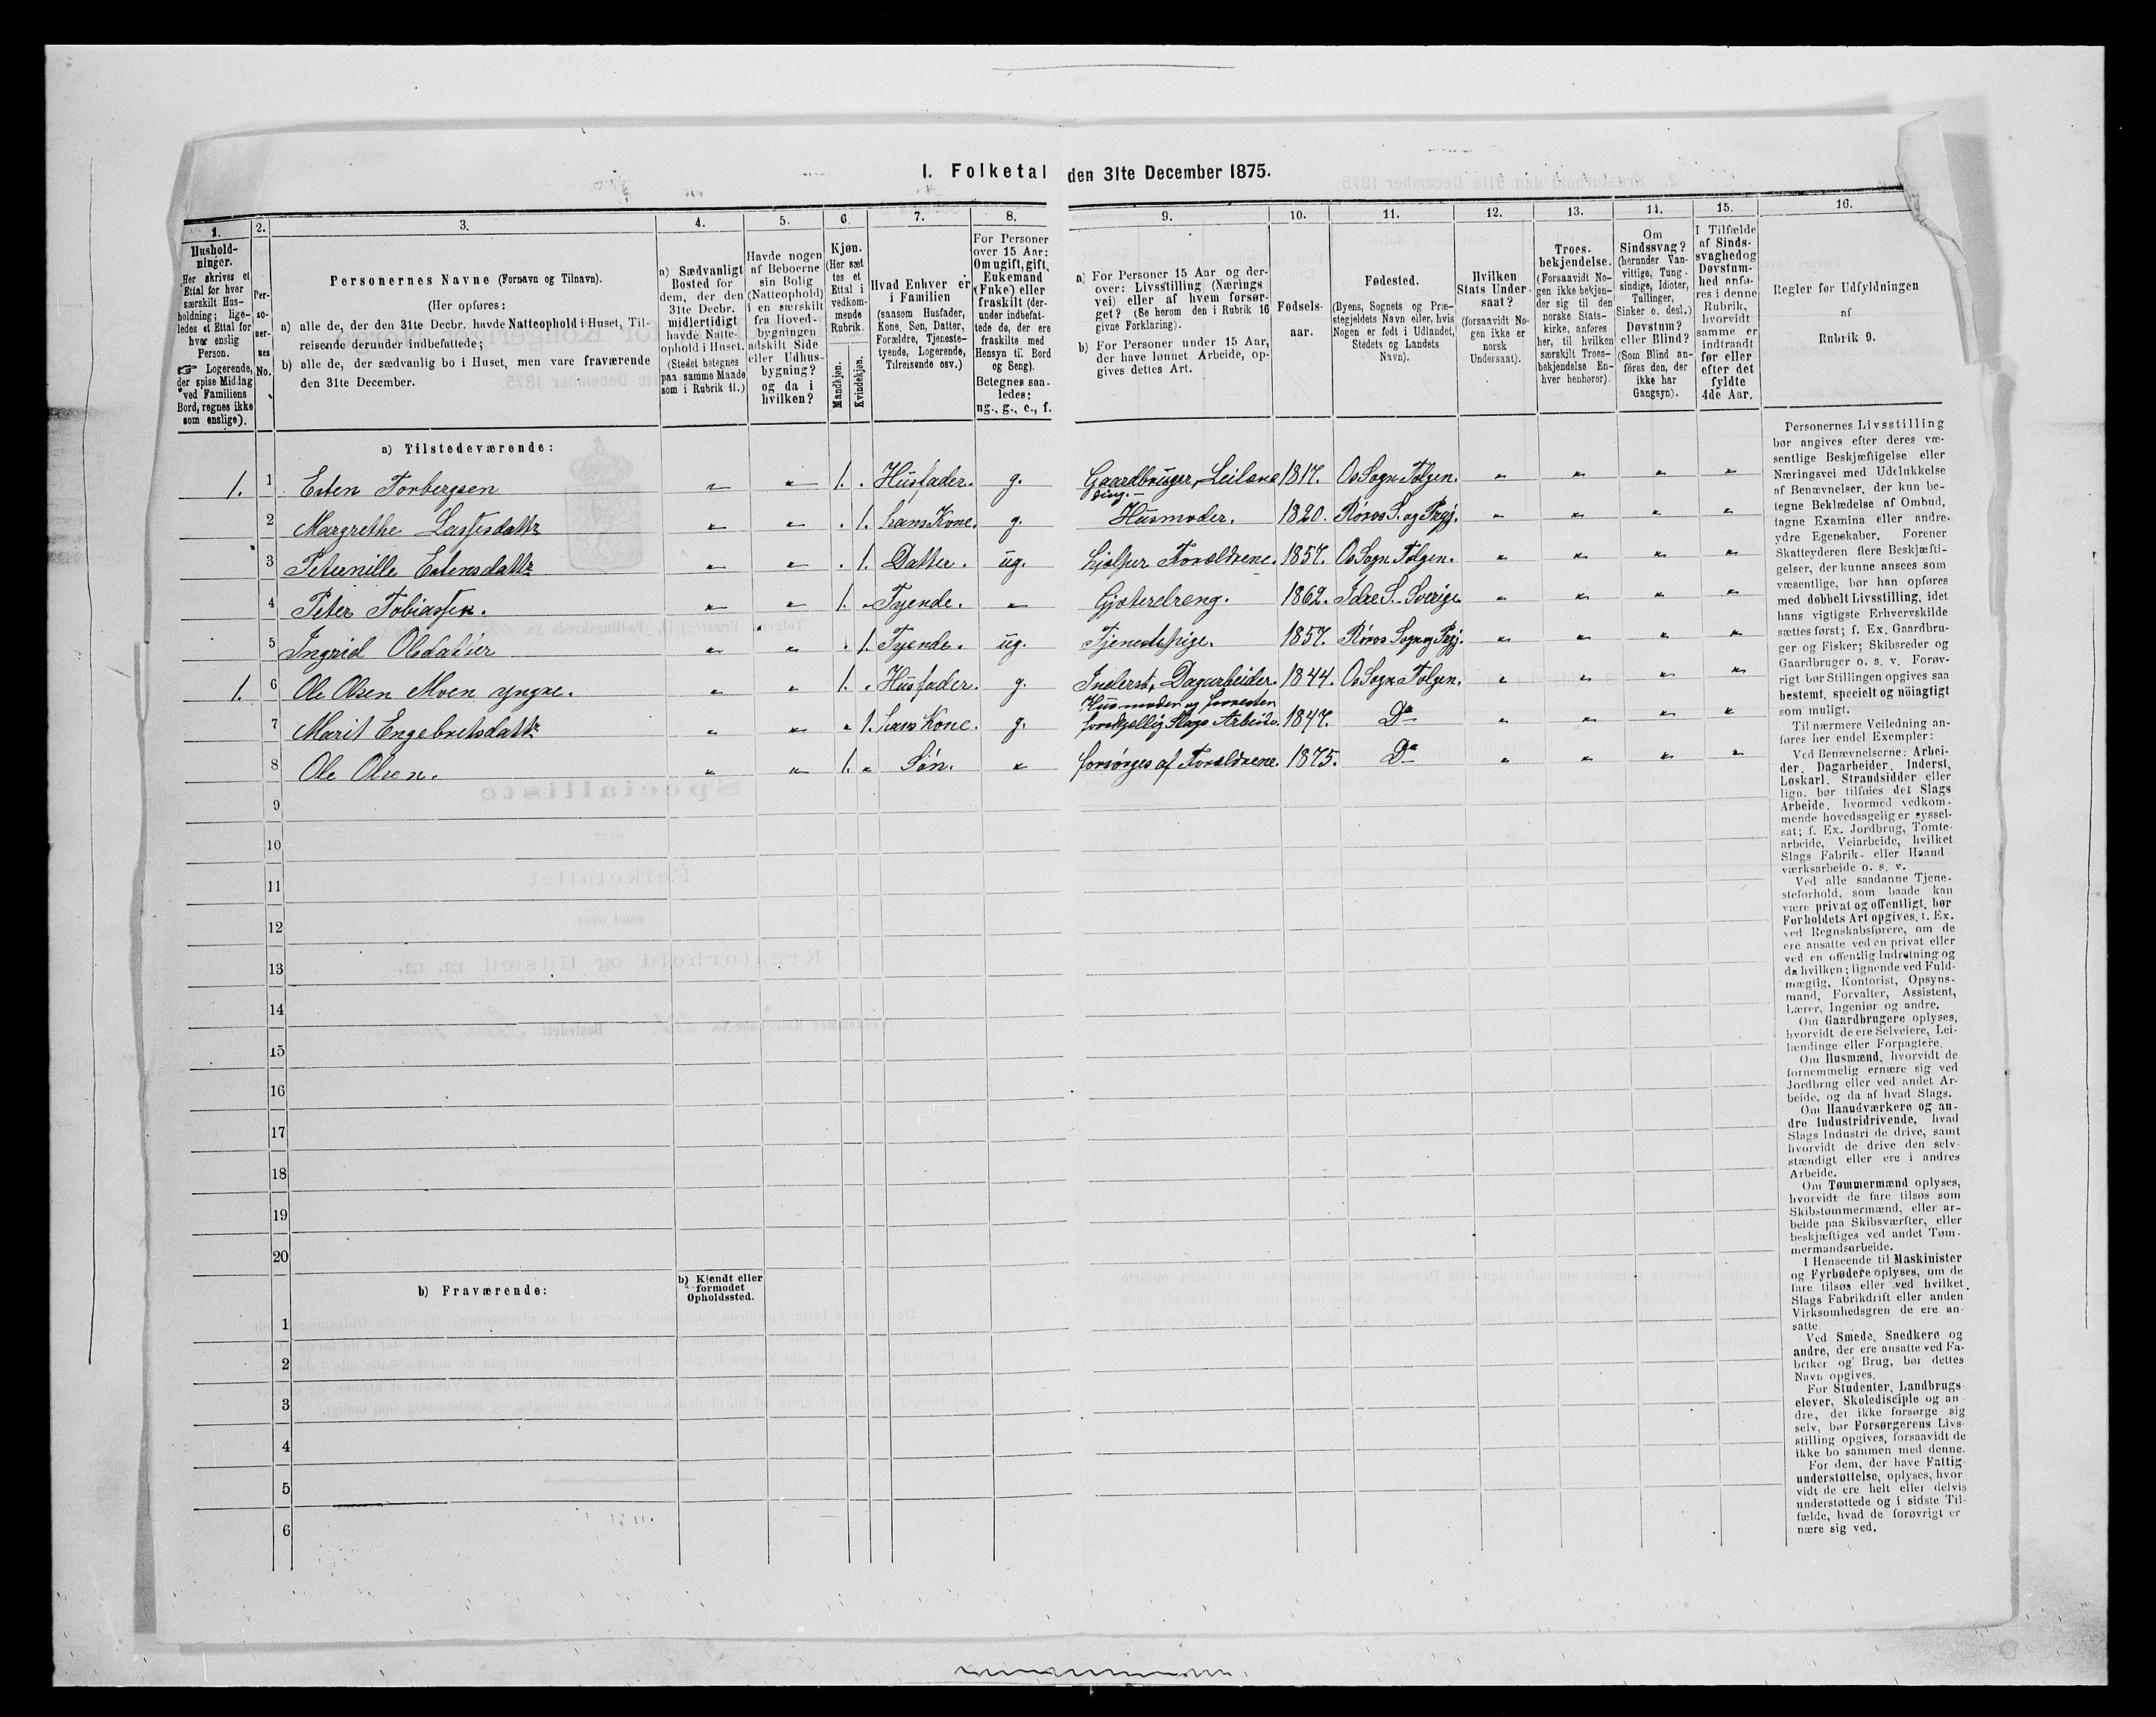 I. Folketal den 31te December 1875.
1. 2. 3. 4. 5. 6. 7. 8. 9. 10. 11. 12. 13. 14. 15. 16.
Hushold-
ninger.
Her skrives et
Ettal for hver
særskilt Hus-
holdning; lige-
ledes et Ettal for
hver enslig
Person.
☞ Logerende,
der spise Middag
ved Familiens
Bord, regnes ikke
som enslige).
Per-
so-
ner-
nes
No.
Personernes Navne (Fornavn og Tilnavn).
(Her opføres:
a) alle de, der den 31te Decbr. havde Natteophold i Huset, Til-
reisende derunder indbefattede;
b) alle de, der sædvanlig bo i Huset, men vare fraværende
den 31te December.
a) Sædvanligt
Bosted for
dem, der den
31te Decbr.
midlertidigt
havde Natte-
ophold i Huset.
(Stedet betegnes
paa samme Maade
som i Rubrik 11.)
Havde nogen
af Beboerne
sin Bolig
(Natteophold)
i en særskilt
fra Hoved-
bygningen
adskilt Side
eller Udhus-
bygning?
og da i
hvilken?
Kjøn.
(Her sæt
tes et
Ettal i
vedkom-
mende
Rubrik.
Mandkjøn.
Kvindekjøn.
Hvad Enhver er
i Familien
(saasom Husfader,
Kone, Søn, Datter,
Forældre, Tjeneste-
tyende, Logerende,
Tilreisende osv.)
For Personer
over 15 Aar:
Om ugift, gift,
Enkemand
(Enke) eller
fraskilt (der-
under indbefat-
tede de, der ere
fraskilte med
Hensyn til Bord
og Seng).
Betegnes saa-
ledes:
ug., g., e., f.
a) For Personer 15 Aar og der-
over: Livsstilling (Nærings
vei) eller af hvem forsør-
get? (Se herom den i Rubrik 16
givne Forklaring).
b) For Personer under 15 Aar,
der have lønnet Arbeide, op-
gives dettes Art.
Fødsels-
aar.
Fødested.
(Byens, Sognets og Præ-
stegjeldets Navn eller, hvis
Nogen er født i Udlandet,
Stedets og Landets
Navn).
Hvilken
Stats Under-
saat?
(forsaavidt No-
gen ikke er
norsk
Undersaat).
Troes-
bekjendelse.
(Forsaavidt No-
gen ikke bekjen-
der sig til den
norske Stats-
kirke, anføres
her, til hvilken
særskilt Troes-
bekjendelse En-
hver henhører).
Om
Sindssvag?
(herunder Van-
vittige, Tung-
sindige, Idioter,
Tullinger,
Sinker o. desl.)
Døvstum?
eller Blind?
(Som Blind an-
föres den, der
ikke har
Gangsyn).
I Tilfælde
af Sinds-
svaghed og
Døvstum-
hed anfø-
res i denne
Rubrik,
hvorvidt
samme er
indtraadt
før eller
efter det
fyldte
4de Aar.
Regler for Udfyldningen
af
Rubrik 9.
a) Tilstedeværende:
1. 1 Esten Torbergsen " " 1. . Husfader. g. Gaardbruger, Leilæn- 1817. Os Sogn Tolgen. " " " "
ding.
2 Margrethe Lassesdattr " " . 1. hans Kone. g. Husmoder. 1820. Røros S. og Prgj. " " " "
3 Peternille Estensdattr " " . 1. Datter. ug. hjelper Forældrene. 1857. Os Sogn Tolgen. " " " "
4 Peter Tobiassen. " " 1. " Tyende. " Gjæterdreng. 1862. Idre S. Sverige. " " " "
5 Ingrid Olsdatter " " . 1. Tyende. ug. Tjenestepige. 1857. Røros Sogn og Prgj. " " " "
1. 6 Ole Olsen Moen yngre. " " 1. " Husfader. g. Inderst, Dagarbeider. 1844. Os Sogn Tolgen. " " " "
Husmoder og forresten
7 Marit Engebretsdattr " " " 1. hans Kone. g. forskjellig Slags Arbeide. 1847. Do " " " "
8 Ole Olsen. " " 1. " Søn. " forsørges af Forældrene. 1875. Do " " " "
9
10
11
12
13
14
15
16
17
18
19
20
b) Fraværende:
b) Kjendt eller
formodet
Opholdssted.
1
2
3
4
5
6
Personernes Livsstilling
bør angives efter deres væ-
sentlige Beskjæftigelse eller
Næringsvei med Udelukkelse
af Benævnelser, der kun be-
tegne Beklædelse af Ombud,
tagne Examina eller andre
ydre Egenskaber. Forener
Skatteyderen flere Beskjæfti-
gelser, der kunne ansees som
væsentlige, bør han opføres
med dobbelt Livsstilling, idet
hans vigtigste Erhvervskilde
sættes først; f. Ex. Gaardbru-
ger og Fisker; Skibsreder og
Gaardbruger o. s. v. Forøv-
rigt bør Stillingen opgives saa
bestemt, specielt og nöiagtigt
som muligt.
Til nærmere Veiledning an-
føres her endel Exempler:
Ved Benævnelserne: Arbei-
der, Dagarbeider, Inderst,
Løskarl, Strandsidder eller
lign. bør tilføies det Slags
Arbeide, hvormed vedkom-
mende hovedsagelig er syssel-
sat; f. Ex. Jordbrug, Tomte-
arbeide, Veiarbeide, hvilket
Slags Fabrik- eller Haand-
værksarbeide o. s. v.
Ved alle saadanne Tjene-
steforhold, som baade kan
være privat og offentligt, bør
Forholdets Art opgives, t. Ex.
ved Regnskabsførere, om de
ere ansatte ved en privat eller
ved en offentlig Indretning og
da hvilken; lignende ved Fuld-
mægtig, Kontorist, Opsyns-
mand, Forvalter, Assistent,
Lærer, Ingeniør og andre.
Om Gaardbrugere oplyses,
hvorvidt de ere Selveiere, Lei-
lændinge eller Forpagtere.
Om Husmænd, hvorvidt de
fornemmelig ernære sig ved
Jordbrug eller ved andet Ar-
beide, og da af hvad Slags.
Om Haandværkere og an-
dre Industridrivende, hvad
Slags Industri de drive, samt
hvorvidt de drive den selv-
stændigt eller ere i andres
Arbeide.
Om Tømmermænd oplyses,
hvorvidt de fare tilsøs som
Skibstømmermænd, eller ar-
beide paa Skibsværfter, eller
beskjæftiges ved andet Tøm-
mermandsarbeide.
I Henseende til Maskinister
og Fyrbødere oplyses, om de
fare tilsøs eller ved hvilket
Slags Fabrikdrift eller anden
Virksomhedsgren de ere an-
satte.
Ved Smede, Snedkere og
andre, der ere ansatte ved Fa-
briker og Brug, bør dettes
Navn opgives.
For Studenter, Landbrugs-
elever, Skoledisciple og an-
dre, der ikke forsørge sig
selv, bør Forsørgerens Livs-
stilling opgives, forsaavidt de
ikke bo sammen med denne.
For dem, der have Fattig-
understøttelse, oplyses, hvor-
vidt de ere helt eller delvis
understøttede og i sidste Til-
fælde, hvad de forøvrigt er-
nære sig ved.